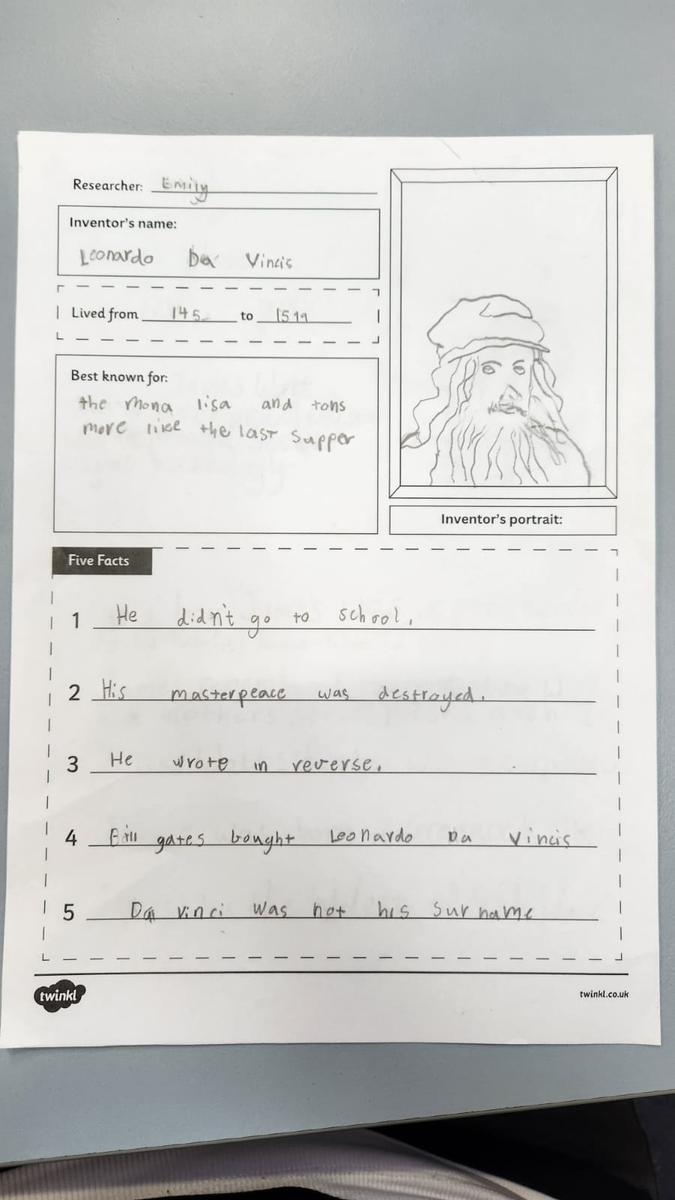 Researcher: Emily
Inventor's name:
Leonardo Da Vincis
Lived from 145 to 1519
Best known for:
the mona lisa and tons
more like the last supper
Inventor's portrait:
Five Facts
1 He didn't go to school.
2 His masterpeace was destroyed.
3 He wrote in reverse.
4 Bill gates bought Leonardo Da Vincis
5 Da vinci was not his surname
twinkl
twinkl.co.uk